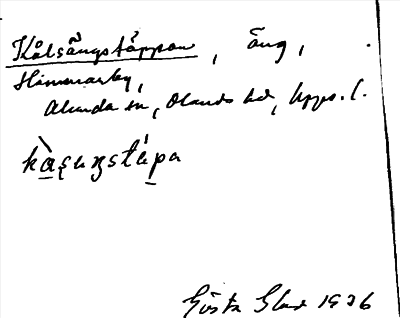 Kålsängstäppan, äng,
Hånarby,
Alunda sn, Olands hd, Upps. l.
kàsuŋstápa
Gösta Glad 1936